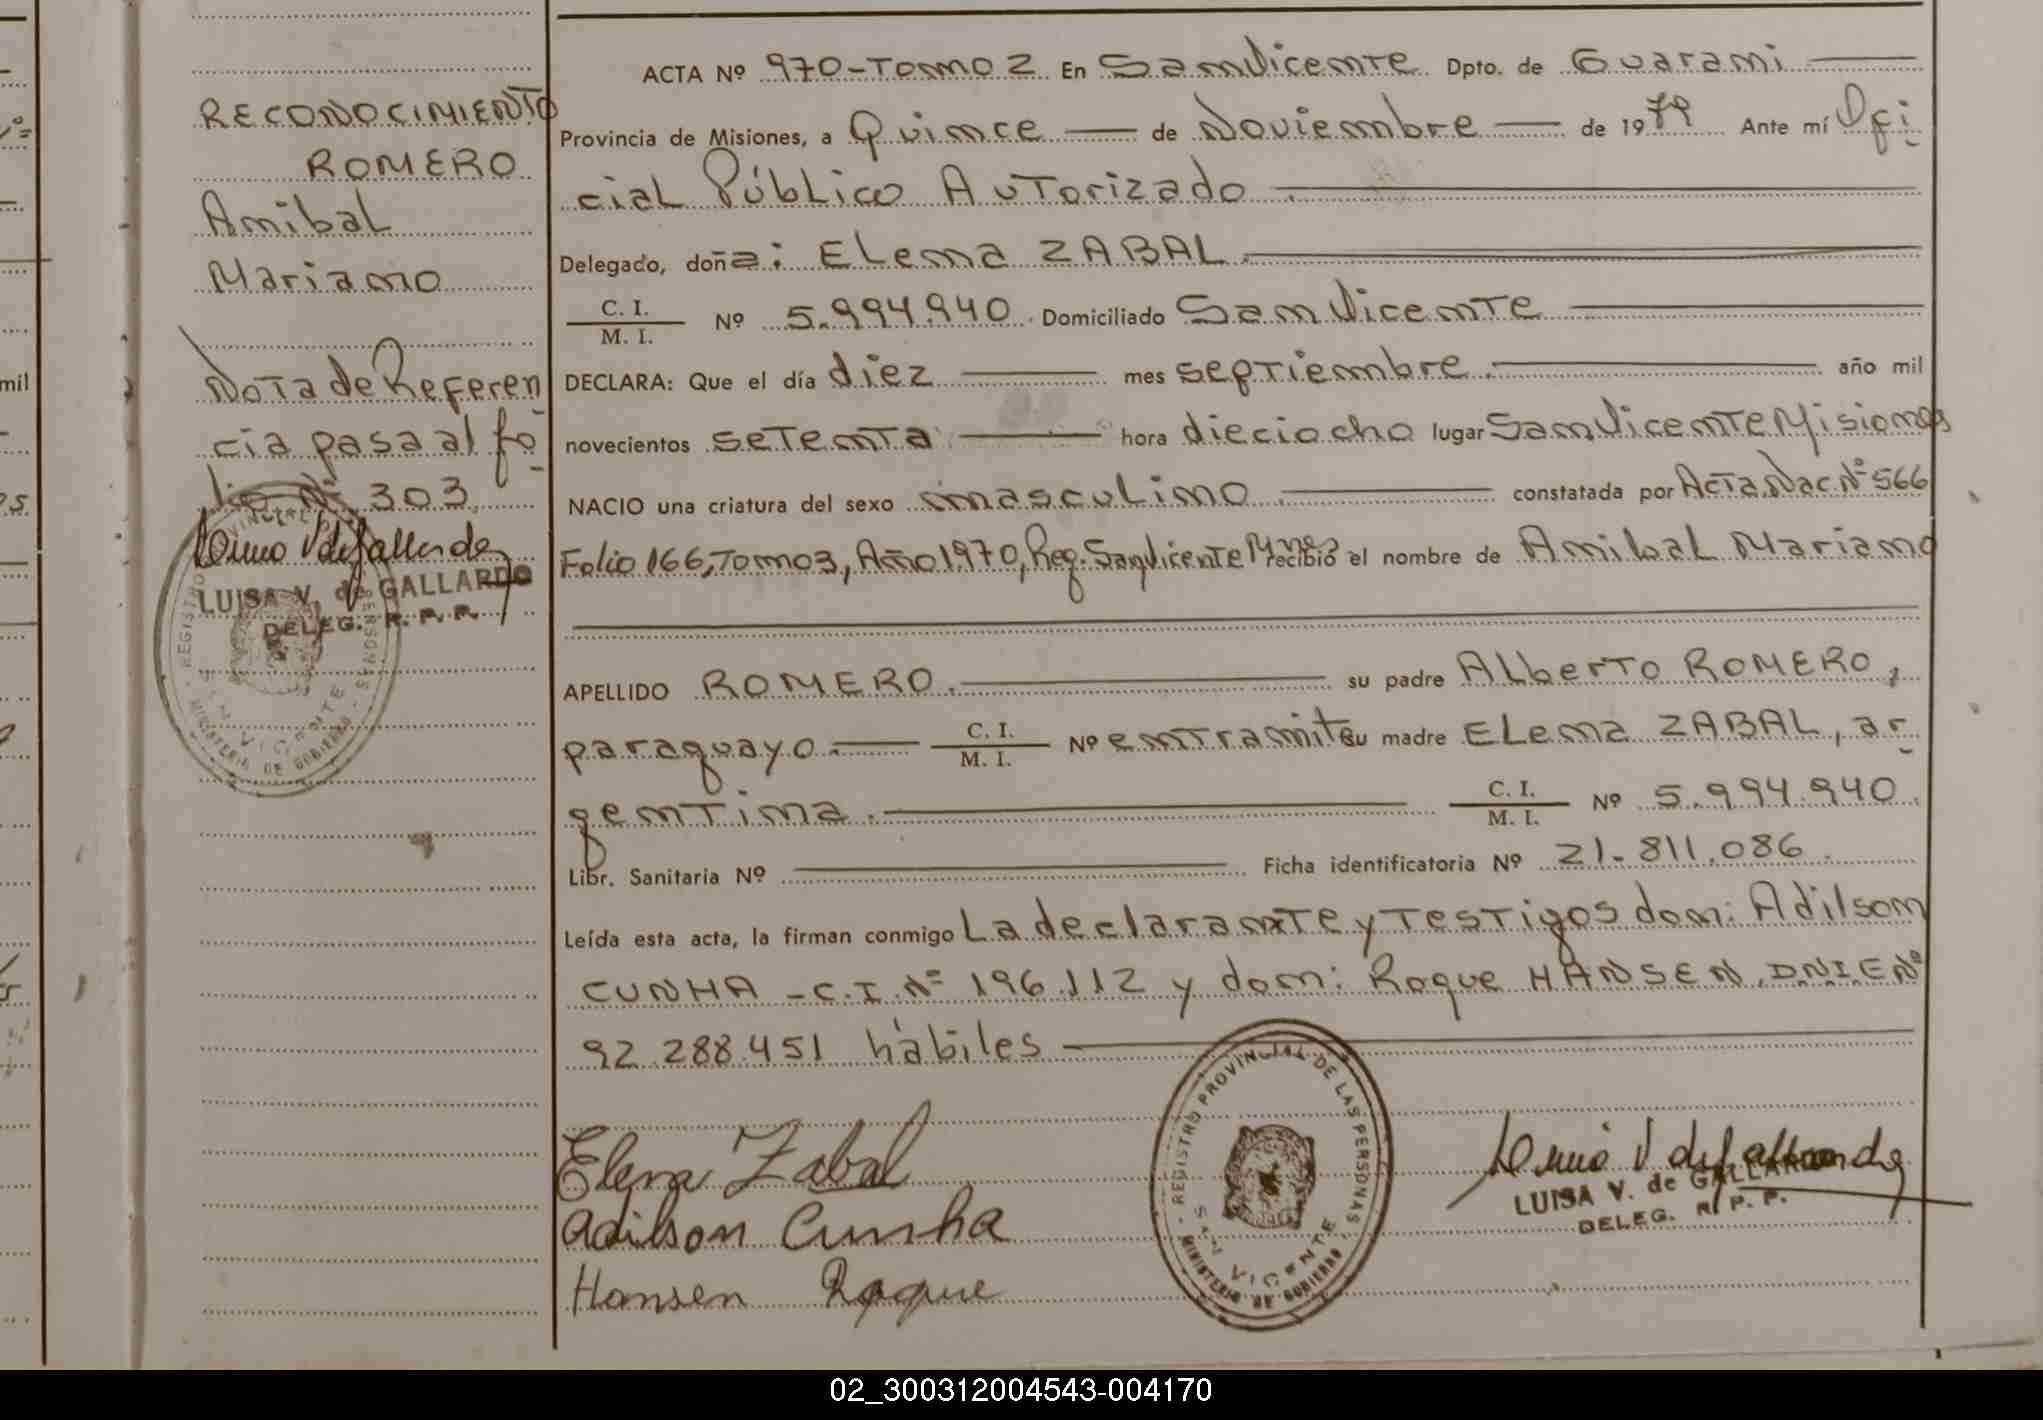 RECONOCIMIENTO
ROMERO
Anibal
Mariano
Nota de Referen
cia pasa al fo
lio Nº 303.
LUISA V. de GALLARDO
DELEG. R. P. P.
REGISTRO PROVINCIAL DE LAS PERSONAS
SAN VICENTE
MINISTERIO DE GOBIERNO
ACTA Nº 970-Tomo 2 En San Vicente Dpto. de Guarani
Provincia de Misiones, a Quince de Noviembre de 1979 Ante mí Ofi
cial Público Autorizado
Delegado, doña: Elena ZABAL
C. I.
M. I. Nº 5.994.940. Domiciliado San Vicente
DECLARA: Que el día diez mes septiembre año mil
novecientos setenta hora dieciocho lugar San Vicente Misiones
NACIO una criatura del sexo masculino constatada por Acta Nac. Nº 566
Folio 166, Tomo 3, Año 1970, Reg. San Vicente Mnes recibió el nombre de Anibal Mariano
APELLIDO ROMERO. su padre Alberto ROMERO,
paraguayo. C. I. M. I. Nº en tramite su madre Elena ZABAL, ar
gentina. C. I. M. I. Nº 5.994.940.
Libr. Sanitaria Nº Ficha identificatoria Nº 21.811.086.
Leída esta acta, la firman conmigo La declarante y Testigos don: Adilson
CUNHA - C.I. Nº 196.112 y don: Roque HANSEN, DNIE Nº
92.288.451 hábiles
Elena Zabal
Adilson Cunha
Hansen Roque
REGISTRO PROVINCIAL DE LAS PERSONAS
SAN VICENTE
MINISTERIO DE GOBIERNO
LUISA V. de GALLARDO
DELEG. R. P. P.
02_300312004543-004170